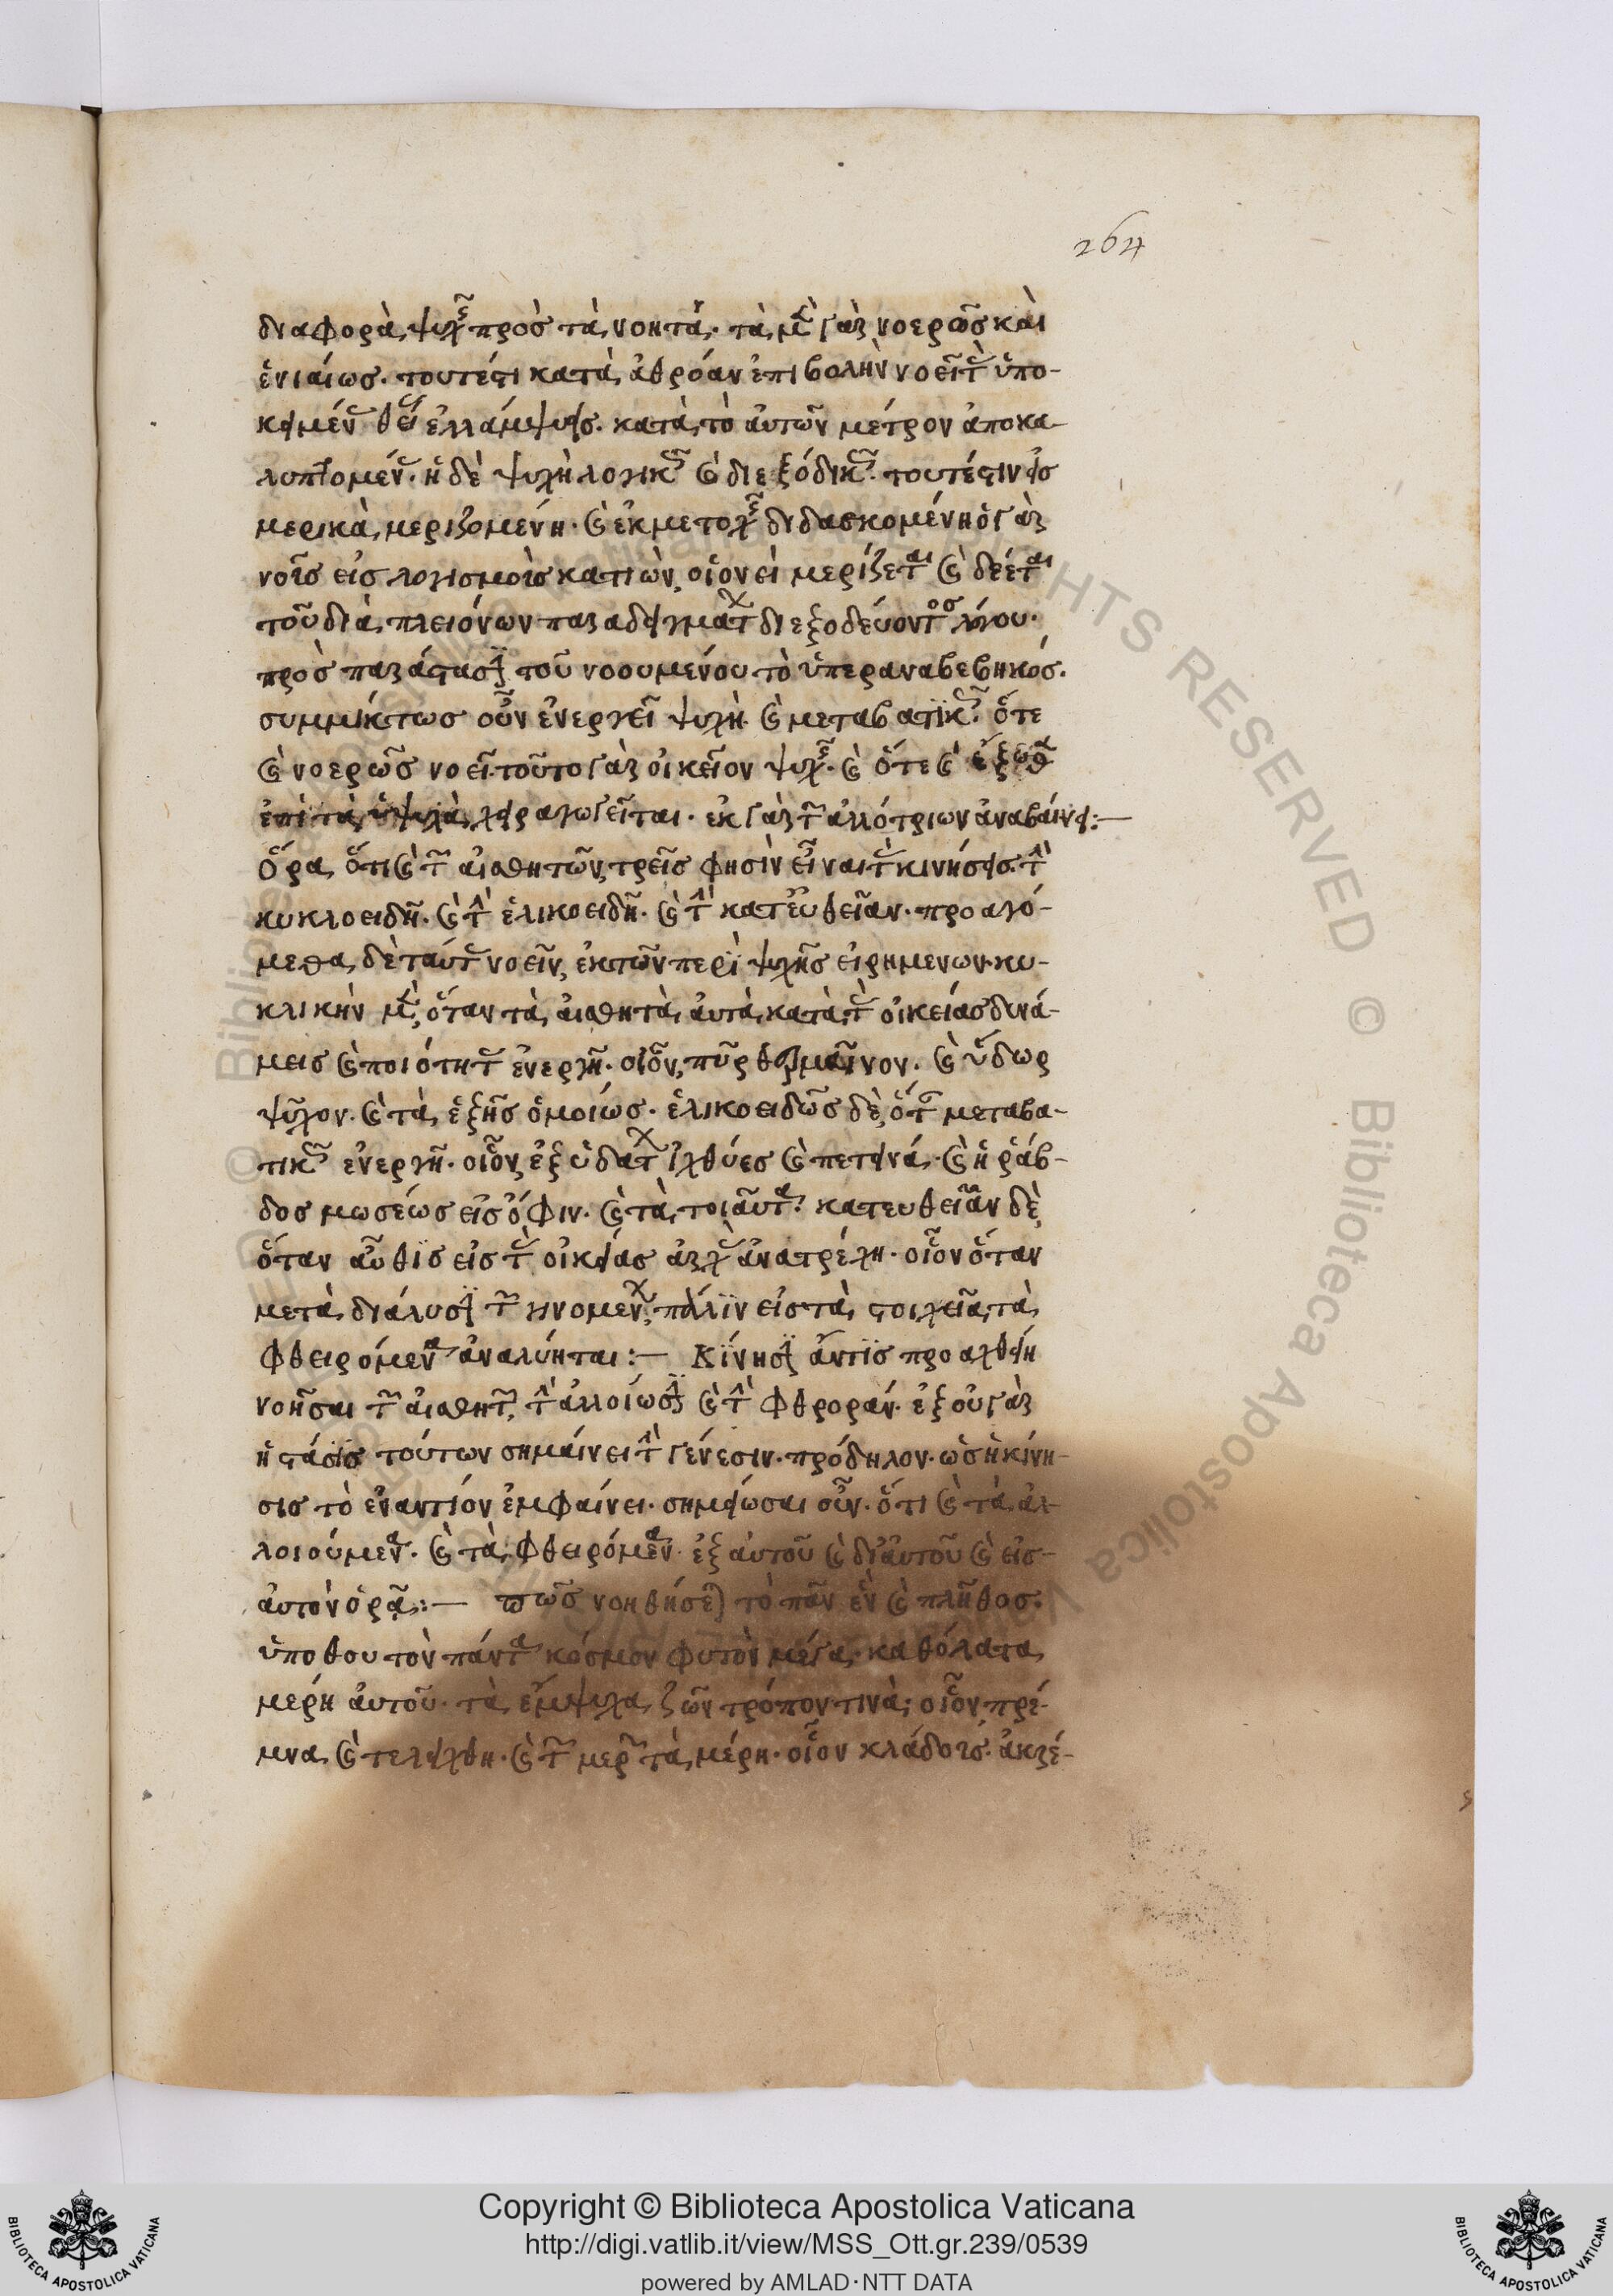 264
διαφορὰ ψυχῆς πρὸς τὰ νοητά· τὰ μὲν γὰρ νοερῶς καὶ
ἑνιαίως· τουτέστι κατὰ ἀθρόαν ἐπιβολὴν νοεῖ τὰς ὑπο-
κειμένας θείας ἐλλάμψεις. κατὰ τὸ αὐτῶν μέτρον ἀποκα-
λυπτομένας· ἡ δὲ ψυχὴ λογικῶς καὶ διεξόδικῶς· τουτέστιν εἰς
μερικὰ μεριζομένη· καὶ ἐκ μετοχῆς διδασκομένη ὁ γὰρ
νοῦς εἰς λογισμοὺς κατιὼν, οἱονεὶ μερίζεται καὶ δέεται
τοῦ διὰ πλειόνων παραδειγμάτων διεξοδεύοντος λόγου·
πρὸς παράστασιν τοῦ νοουμένου τὸ ὑπεραναβεβηκός.
συμμίκτως οὖν ἐνεργεῖ ψυχὴ καὶ μεταβατικῶς· ὅτε
καὶ νοερῶς νοεῖ· τοῦτο γὰρ οἰκεῖον ψυχῆς· καὶ ὅτε καὶ ἔξωθεν
ἐπὶ τὰ ὑψηλὰ χειραγωγεῖται· ἐκ γὰρ τῶν ἀλλότριων ἀναβαίνει:—
Ὅρα ὅτι καὶ τῶν αἰσθητῶν, τρεῖς φησὶν εἶναι τὰς κινήσεις· τὴν
κυκλοειδῆ· καὶ τὴν ἑλικοειδῆ· καὶ τὴν κατευθεῖαν· προαγό-
μεθα δὲ ταύτας νοεῖν, ἐκ τῶν περὶ ψυχῆς εἰρημενων· κυ-
κλικὴν μὲν, ὅταν τὰ αἰσθητὰ αὐτὰ κατὰ τὰς οἰκείας δυνά-
μεις καὶ ποιότητας ἐνεργῆ· οἷον, πῦρ θερμαῖνον· καὶ ὕδωρ
ψῦχον· καὶ τὰ ἑξῆς ὁμοίως· ἑλικοειδῶς δὲ, ὅταν μεταβα-
τικῶς ἐνεργῆ· οἷον, ἐξ ὑδάτων ἰχθύες καὶ πετεινά· καὶ ἡ ῥάβ-
δος μωσέως εἰς ὄφιν· καὶ τὰ τοιαῦτα· κατευθεῖαν δὲ
ὅταν αὖθις εἰς τὰς οἰκείας ἀρχὰς ἀνατρέχη· οἷον ὅταν
μετὰ διάλυσιν τῶν γινομένων, πάλιν εἰς τὰ στοιχεῖα τὰ
φθειρόμενα ἀναλύηται:— Κίνησιν ἄν τις προαχθείη
νοῆσαι τῶν αἰσθητῶν, τὴν ἀλλοίωσιν καὶ τὴν φθροράν· ἐξ οὗ γὰρ
ἡ στάσις τούτων σημαίνει τὴν γένεσιν· πρόδηλον· ὡς ἡ κίνη-
σις τὸ ἐναντίον ἐμφαίνει· σημείωσαι οὖν· ὅτι καὶ τὰ ἀλ-
λοιούμενα· καὶ τὰ φθειρόμενα· ἐξ αὐτοῦ καὶ δι' αὐτοῦ καὶ εἰς
αὐτὸν ὁρᾷ:— πῶς νοηθήσεται τὸ πᾶν ἓν καὶ πλῆθος·
ὑπόθου τὸν πάντα κόσμον φυτὸν μέγα· καθόλα τα
μέρη αὐτοῦ· τὰ ἔμψυχα ζῶν τρόπον τινὰ; οἷον, πρέ-
μνα καὶ τελείχθη· καὶ τῶν μερῶν τὰ μέρη· οἷον κλάδοις· ἀκρέ-
Copyright © Biblioteca Apostolica Vaticana
http://digi.vatlib.it/view/MSS_Ott.gr.239/0539
powered by AMLAD·NTT DATA